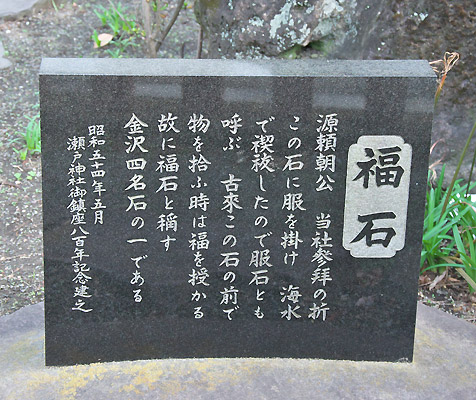 福石
源頼朝公　当社参拝の折
この石に服を掛け　海水
で禊祓したので服石とも
呼ぶ　古來この石の前で
物を拾ふ時は福を授かる
故に福石と稱す
金沢四名石の一である
昭和五十四年五月
瀬戸神社御鎮座八百年記念建之